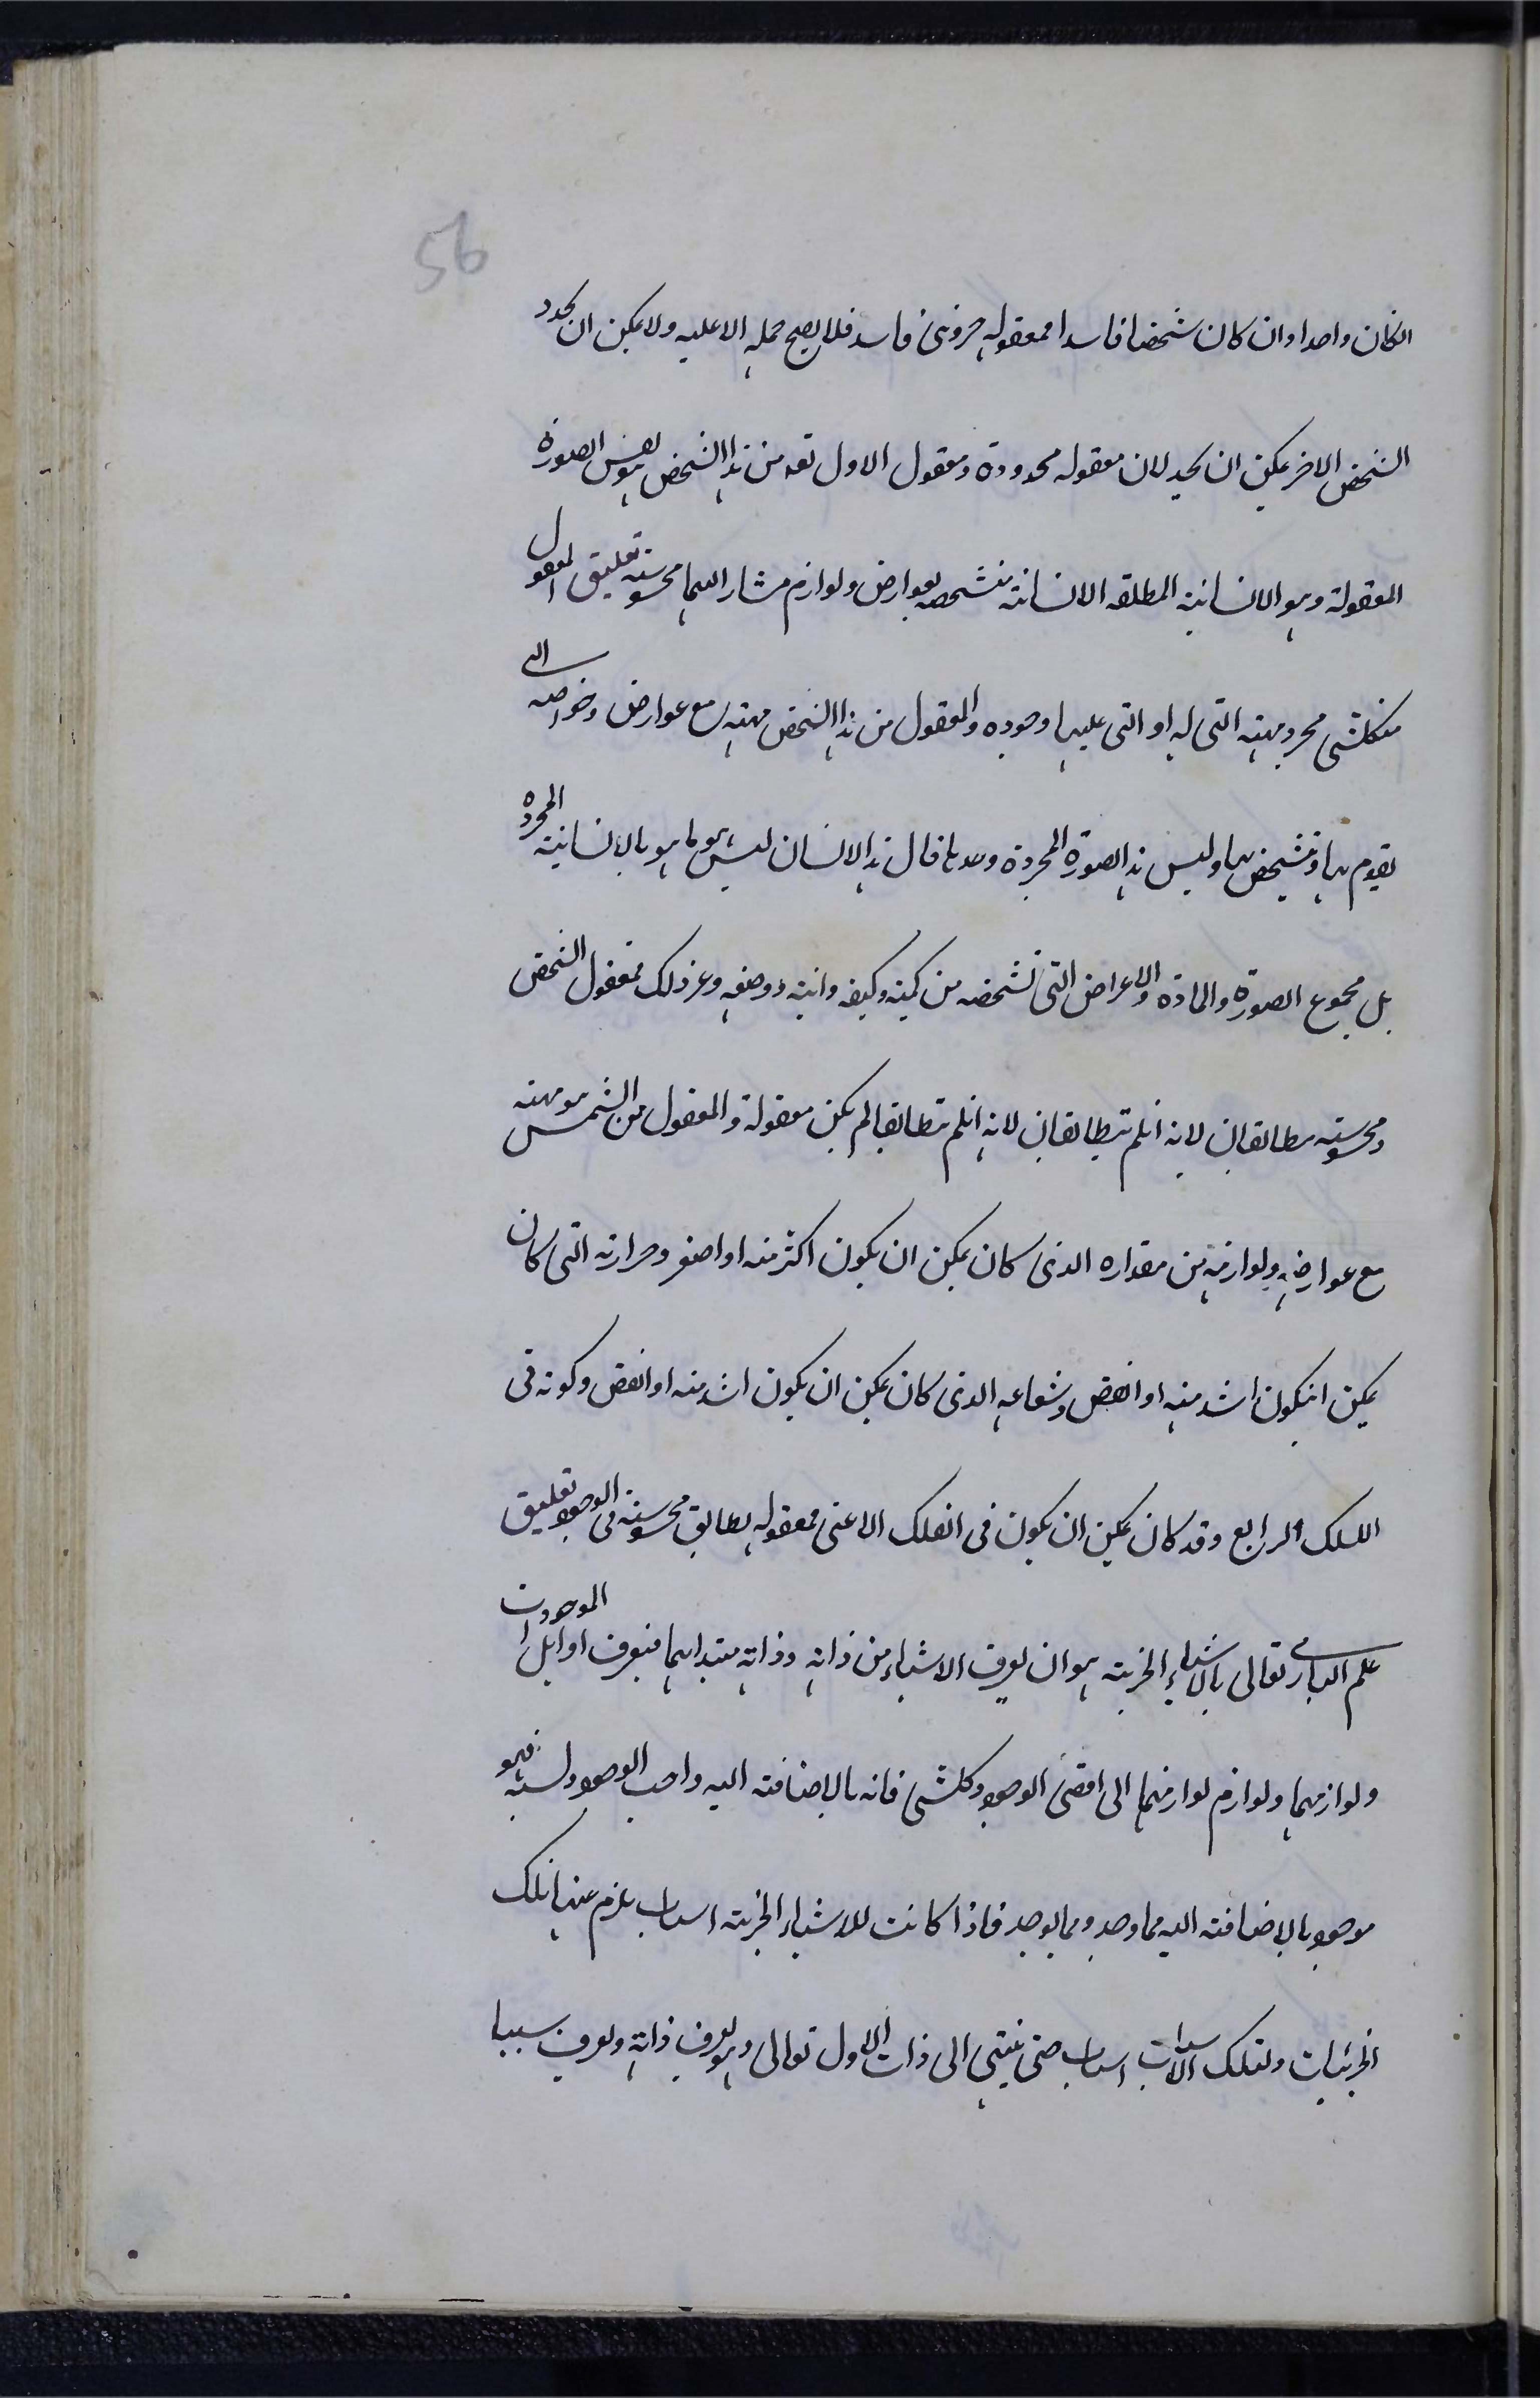 56
انكان واحدا وان كان شخصا فاسدا فمعقوله جزوى فاسد فلا يصح حمله الا عليه ولا يمكن ان يحدد
الشخص الاخر يمكن ان يحد لان معقوله محدودة ومعقول الاول تعه من هذا الشخص هو نفس الصورة
المعقولة وهو الانسانية المطلقه الانسانية متشخصه بعوارض ولوازم مشار اليها محسوسة تعليق المعقول
من كلشى مجرد مهيته التى له او التى عليها وجوده والمعقول من هذا الشخص مهيته مع عوارض وخواصه التى
يقوم بها وتتشخص بها وليس هذا الصورة المجردة وحدها فان هذا الانسان ليس هو ما هو بالانسانية المجردة
بل مجموع الصورة والمادة والاعراض التى تشخصه من كمية وكيفه واينه ووضعه وغير ذلك فمعقول الشخص
ومحسوسه مطابقان لانه انلم يتطابقان لانه انلم يتطابقا لم يكن معقوله والمعقول من الشمس هو مهيته
مع عوارضه ولوازمه من مقداره الذى كان يمكن ان يكون اكثر منه او اصغر وحرارته التى كان
يمكن انيكون اشد منه او انقص وشعاعه الذى كان يمكن ان يكون اشد منه او انقص وكونه فى
الفلك الرابع وقد كان يمكن ان يكون فى الفلك الاعلى فمعقوله يطابق محسوسه فى الوجود تعليق
علم البارى تعالى بالاشياء الجزئية هو ان يعرف الاشياء من ذاته وذاته مبتداها فيعرف اوايل الموجودات
ولوازمها ولوازم لوازمها الى اقصى الوجود وكلشى فانه بالاضافة اليه واجب الوجود وليسته فهو
موجود بالاضافة اليه مما وجد ومما يوجد فاذا كانت للاشياء الجزئية اسباب يلزم عنها تلك
الجزئيات ولتلك الاسباب اسباب حتى ينتهى الى ذات الاول تعالى وهو يعرف ذاته ويعرف سببا